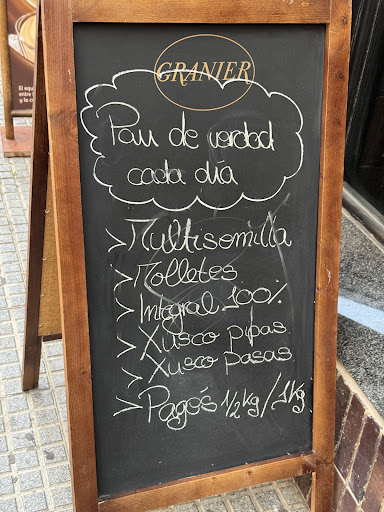 GRANIER
Pan de verdad
cada día
> Multisemilla
> Molletes
> Integral 100%
> Xusco pipas
> Xusco pasas
> Pagés 1/2 kg / 1kg
El equ
entre
y la c